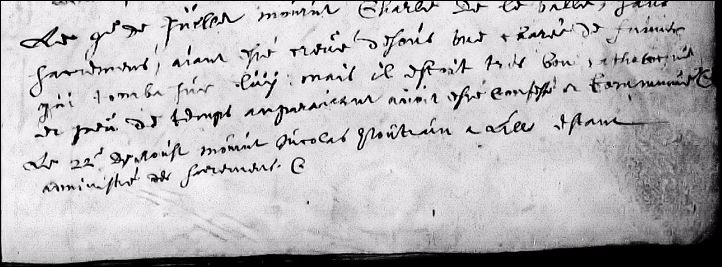 Le 9e de Juillet mourut Charle de le valle, sans
sacremens, aiant esté crevé desous une charée de fumier
qui tomba sur luy mais il estoit tres bon catholicque
et peu de temps auparavant avoit esté confessé et communié
Le 22e d'Aoust mourut Nicolas a Lille estant
administré des sacremens.